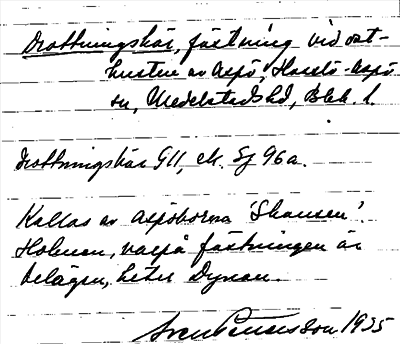 Drottningskär, fästning vid ost-
kusten av Aspö, Hasslö-Aspö
sn, Medelstads hd, Blek. l.
Drottningskär G11, ek. Sj 96a.
Kallas av aspöborna 'Skansen'.
Holmen, varpå fästningen är
belägen, heter Dynan.
Sven Benson 1935